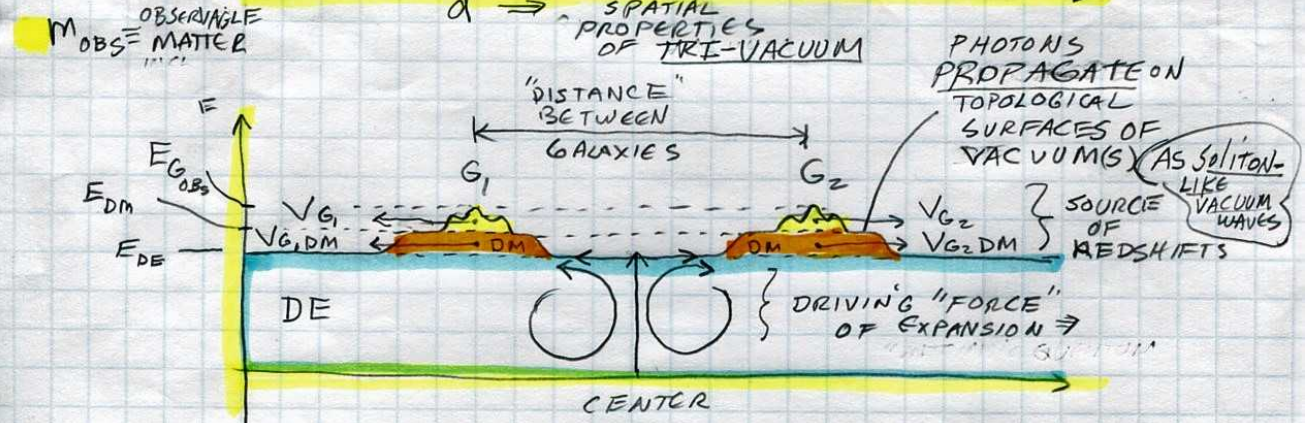 M OBS ≡ OBSERVABLE
MATTER
d ⇒ SPATIAL
PROPERTIES
OF TRI-VACUUM
PHOTONS
PROPAGATE ON
TOPOLOGICAL
SURFACES OF
VACUUM(S)
AS SOLITON-
LIKE
VACUUM
WAVES
"DISTANCE"
BETWEEN
GALAXIES
E
E G OBS
E DM
E DE
G1
G2
VG1
VG1DM
DM
DM
VG2
VG2DM
SOURCE
OF
REDSHIFTS
DE
DRIVING "FORCE"
OF EXPANSION ⇒
CENTER